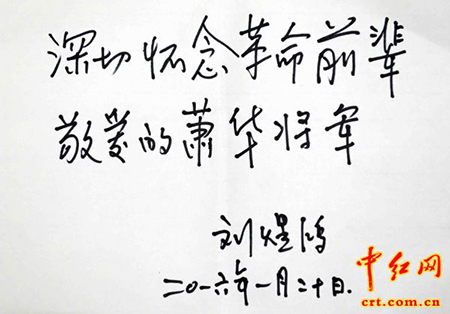 深切怀念革命前辈
敬爱的萧华将军
刘煜鸿
二〇一六年一月二十日.
中红网
crt.com.cn